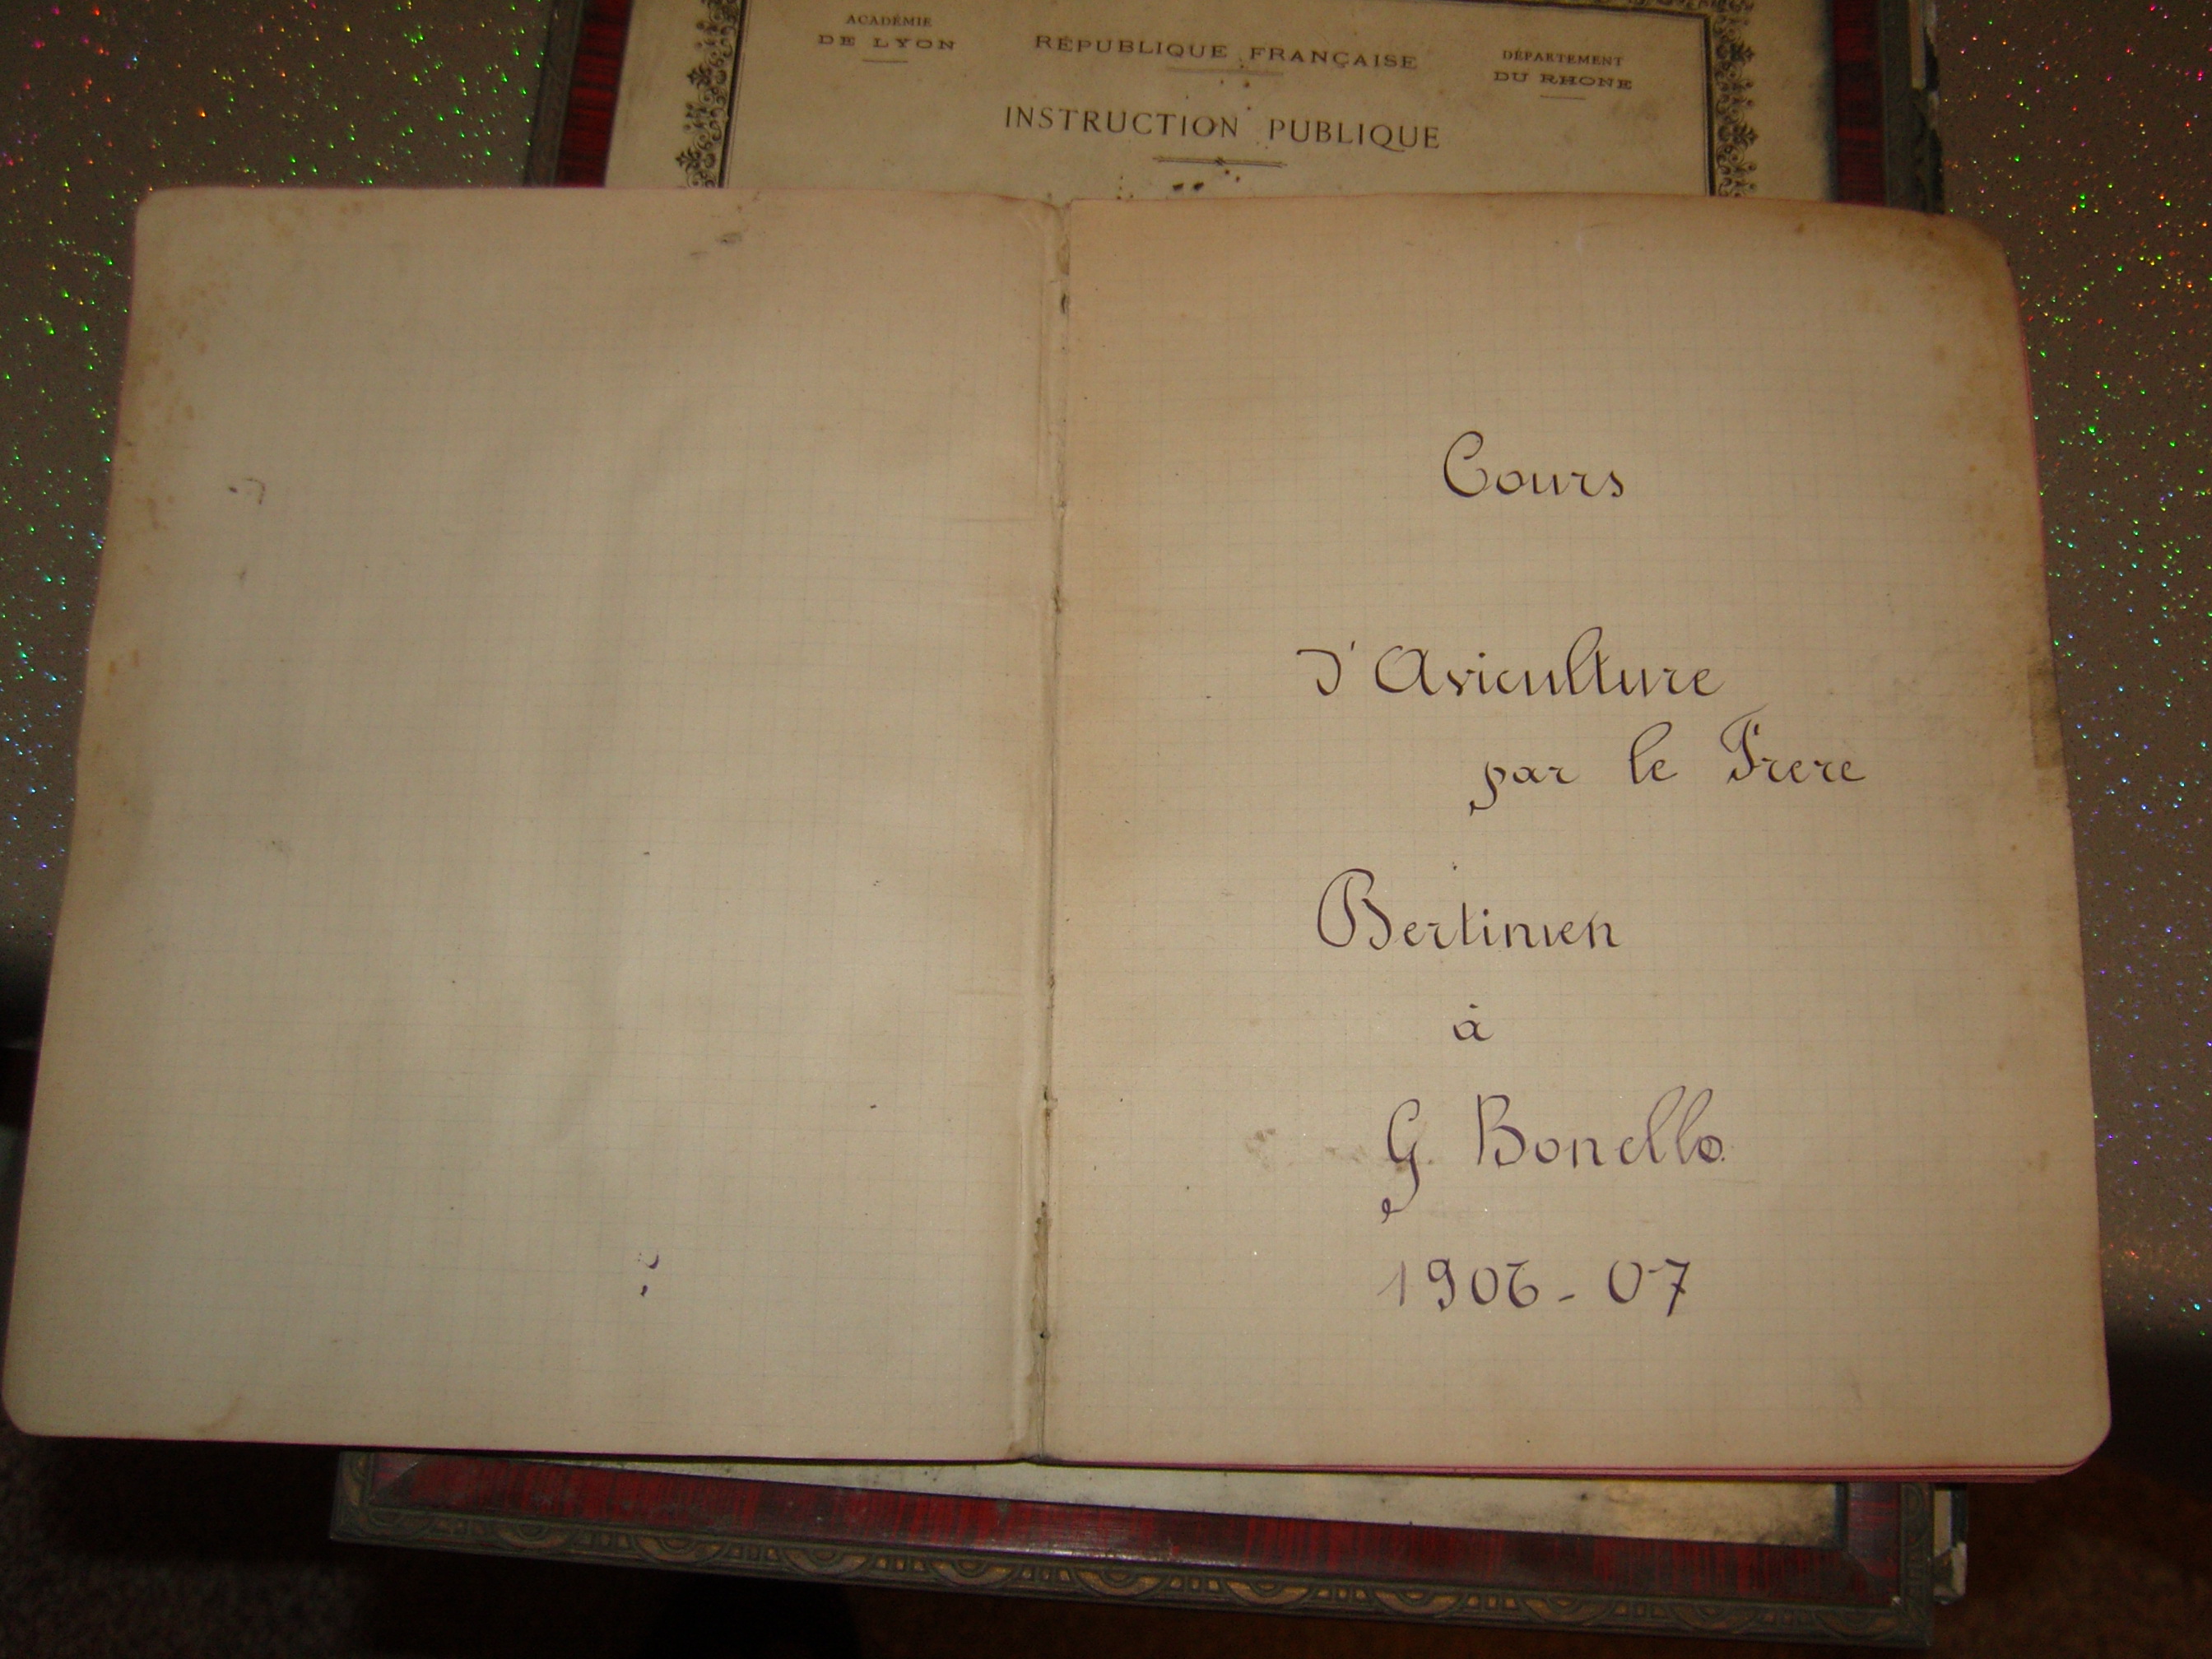 ACADÉMIE
DE LYON
RÉPUBLIQUE FRANÇAISE
DÉPARTEMENT
DU RHONE
INSTRUCTION PUBLIQUE
Cours
d'Aviculture
par le Frere
Bertinien
à
G Bonello
1906-07